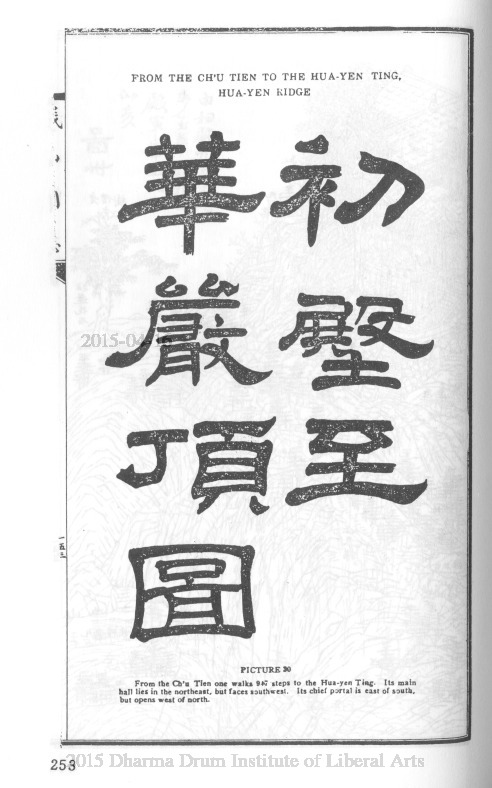 FROM THE CH'U TIEN TO THE HUA-YEN TING,
HUA-YEN RIDGE
初壂至
華嚴頂圖
PICTURE 30
From the Ch'u Tien one walks 947 steps to the Hua-yen Ting. Its main
hall lies in the northeast, but faces southwest. Its chief portal is east of south,
but opens west of north.
253
2015 Dharma Drum Institute of Liberal Arts